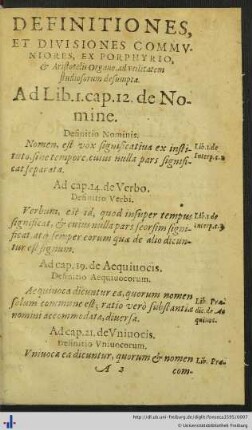 DEFINITIONES,
ET DIVISIONES COMMV-
NIORES, EX PORPHYRIO,
& Aristotelis Organo, ad vtilitatem
studiosorum desumptæ.
Ad Lib.1.cap.12. de No-
mine.
Definitio Nominis.
Nomen, est vox significatiua ex insti-
tuto, sine tempore, cuius nulla pars signifi-
cat separata.
Lib. de
Interp.c.2
Ad cap.14. de Verbo.
Definitio Verbi.
Verbum, est id, quod insuper tempus
significat, & cuius nulla pars seorsim signi-
ficat, atq; semper eorum quæ de alio dicun-
tur est signum.
Lib. de
Interp.c.3
Ad cap.19. de Aequiuocis.
Definitio Aequiuocorum.
Aequiuoca dicuntur ea, quorum nomen
solum commune est; ratio verò substantiæ
nomini accommodata, diuersa.
Ad cap.21. de Vniuocis.
Definitio Vniuocorum.
Vniuoca ea dicuntur, quorum & nomen
A 2
com-
http://dl.ub.uni-freiburg.de/diglit/fonseca1593/0007
© Universitätsbibliothek Freiburg